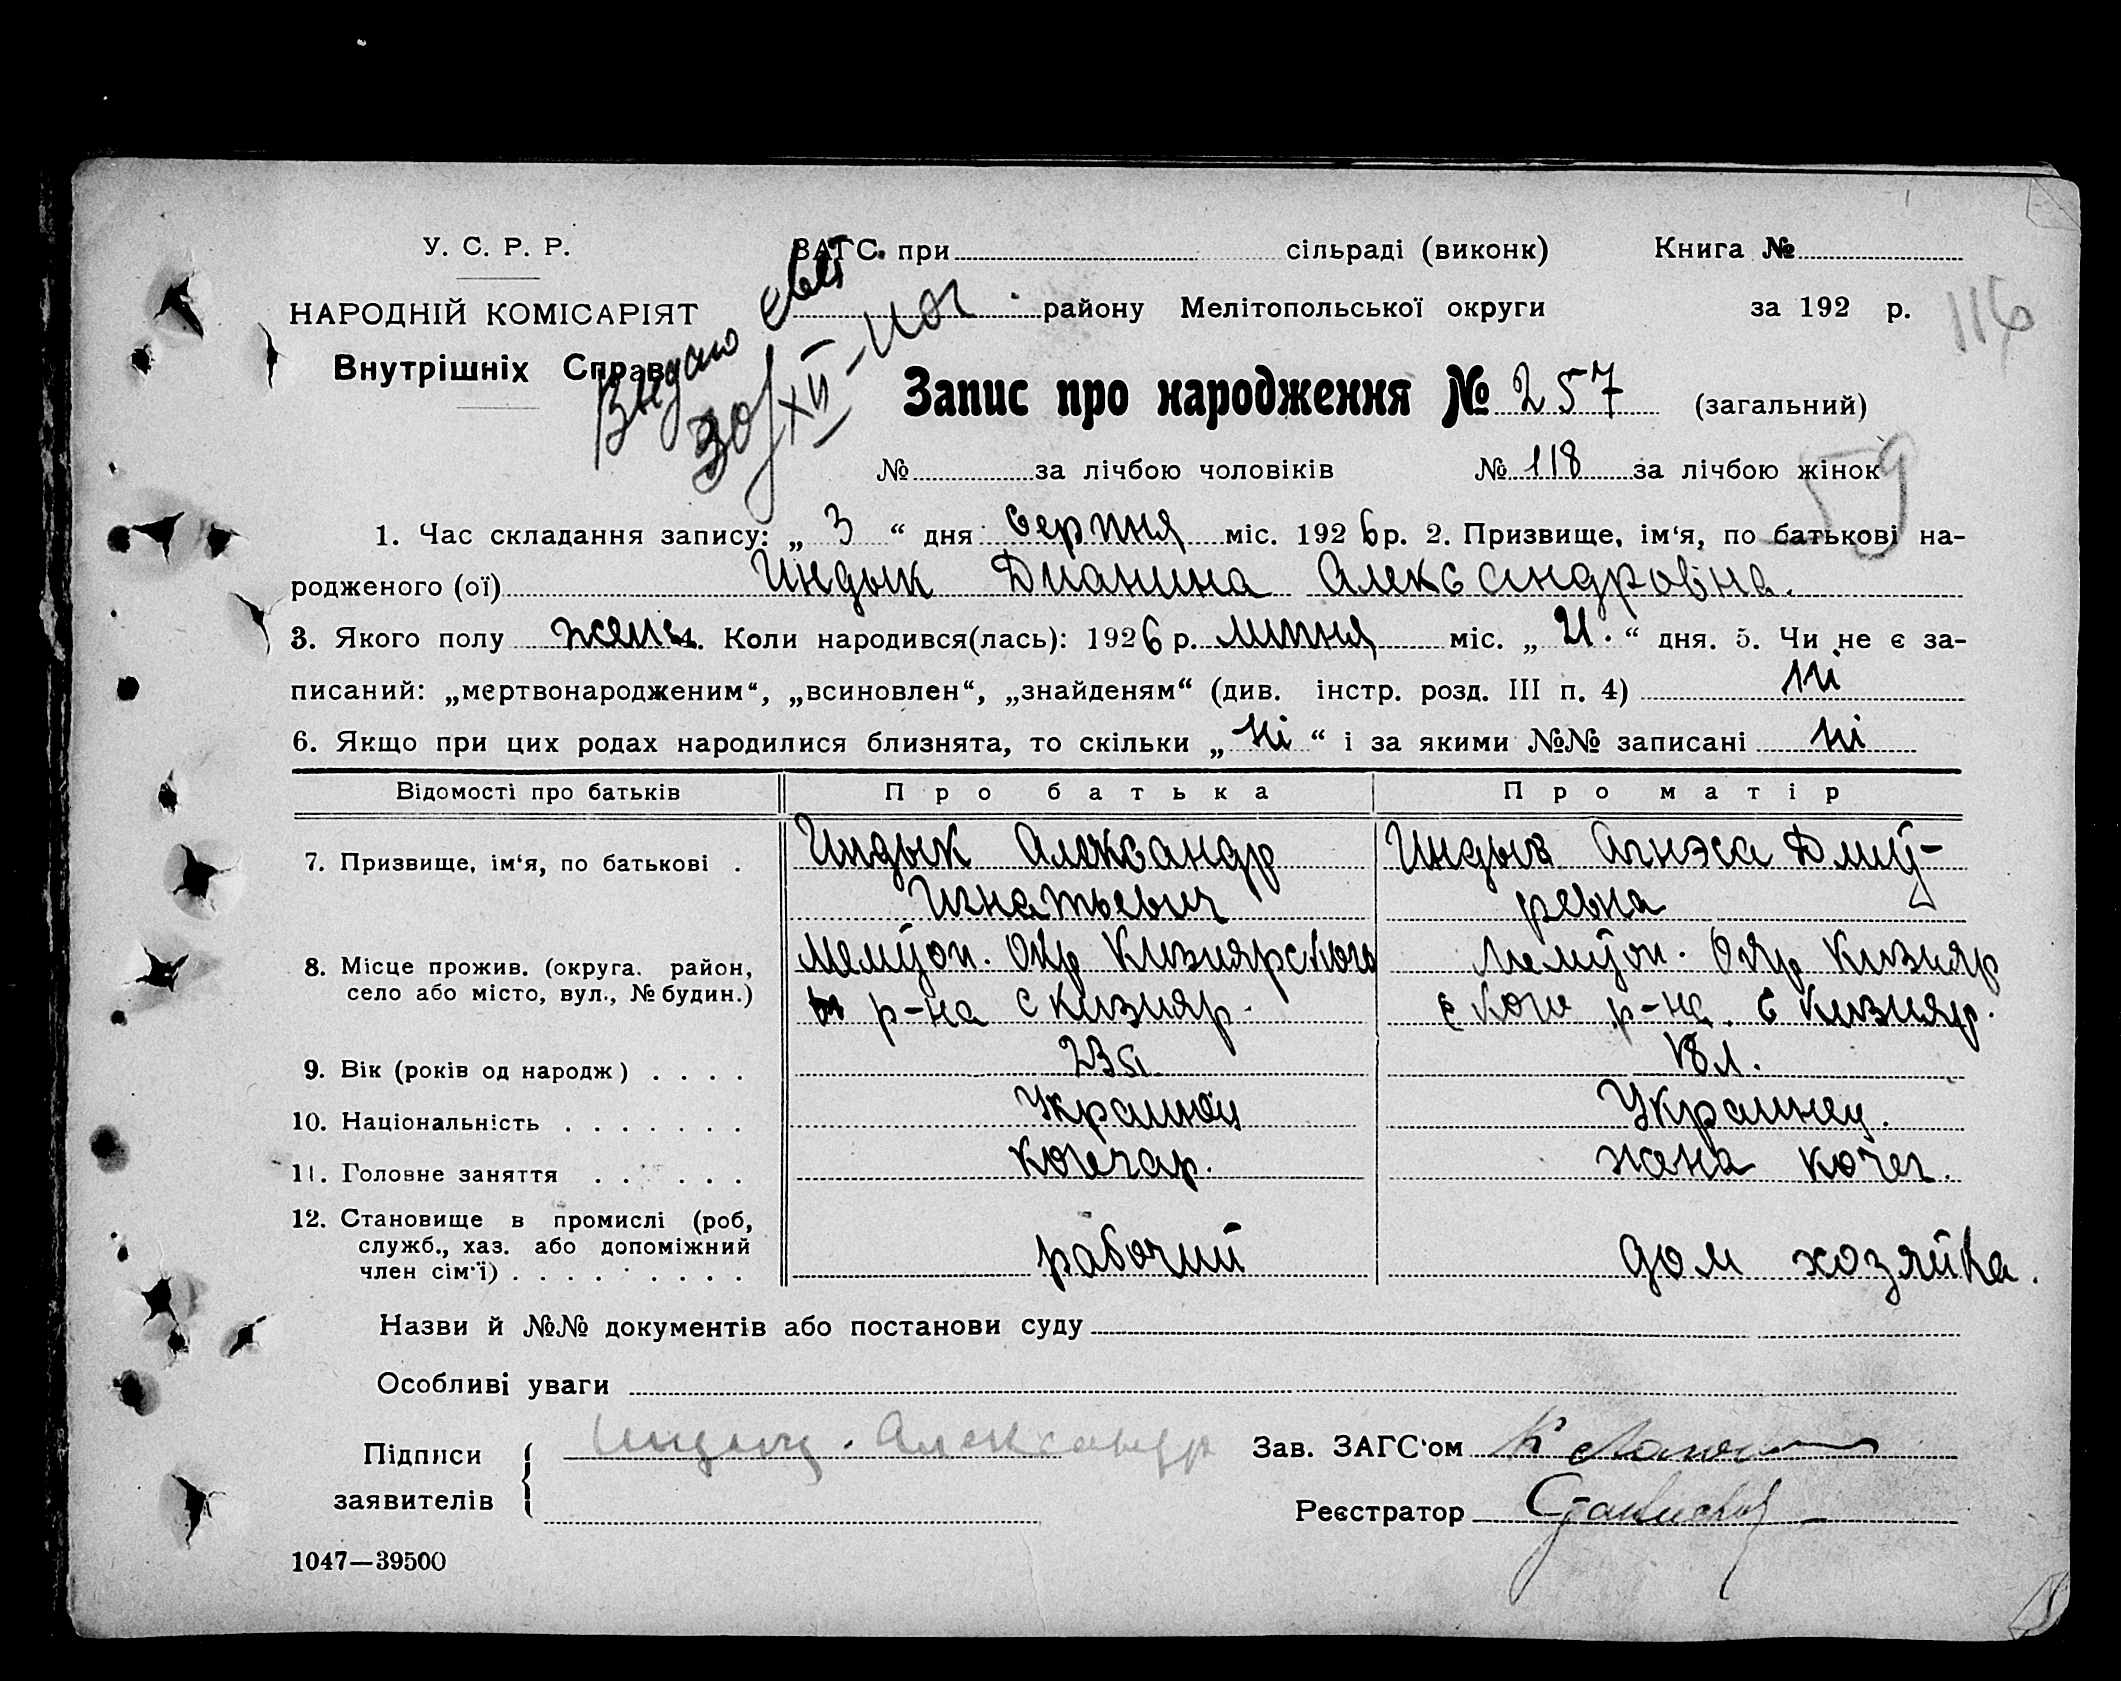 У. С. Р. Р.
ЗАГС при сільраді (виконк) Книга №
НАРОДНІЙ КОМІСАРІЯТ
району Мелітопольської округи за 192 р.
116
Внутрішніх Справ
Выдано
30/XII
Запис про народження № 257 (загальний)
№ за лічбою чоловіків № 118 за лічбою жінок
59
1. Час складання запису: „ 3 “ дня серпня міс. 1926 р. 2. Призвище, ім‘я, по батькові на-
родженого (ої) Индык Дианина Александровна.
3. Якого полу жень 4. Коли народився(лась): 1926 р. липня міс. „ 21. “ дня. 5. Чи не є за-
писаний: „мертвонародженим“, „всиновлен“, „знайденям“ (див. інстр. розд. III п. 4) ні
6. Якщо при цих родах народилися близнята, то скільки „ ні “ і за якими №№ записані ні
Відомості про батьків Про батька Про матір
7. Призвище, ім‘я, по батькові . Индык Александр Индык Агнэса Дмит-
Игнатьевич ревна
8. Місце прожив. (округа. район, Мелитоп. Окр Кизиярского Мелитоп. Окр Кизияр
село або місто, вул., № будин.) р-на с Кизияр. ского р-на с Кизияр.
9. Вік (років од народж) . . . . 23 18 л.
10. Національність . . . . . . . Украинец Украинец.
11. Головне заняття . . . . . . Кочегар. жена кочег.
12. Становище в промислі (роб,
служб., хаз. або допоміжний рабочий дом хозяйка.
член сім‘ї) . . . . . . . . .
Назви й №№ документів або постанови суду
Особливі уваги
Підписи Александр Зав. ЗАГС‘ом
заявителів Реєстратор
1047—39500